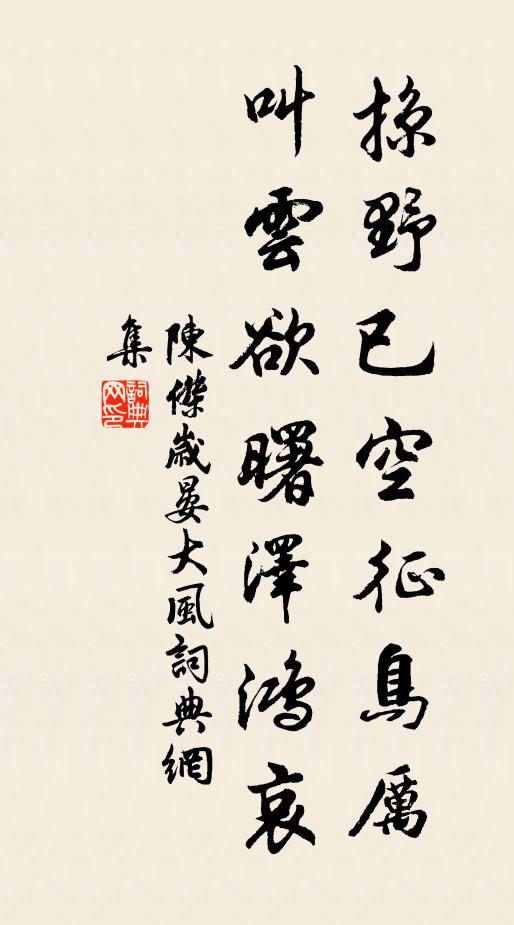 掠野已空征鳥厲
叫雲欲曙澤鴻哀
陳傑歲晏大風詞典網
集
詞典網印